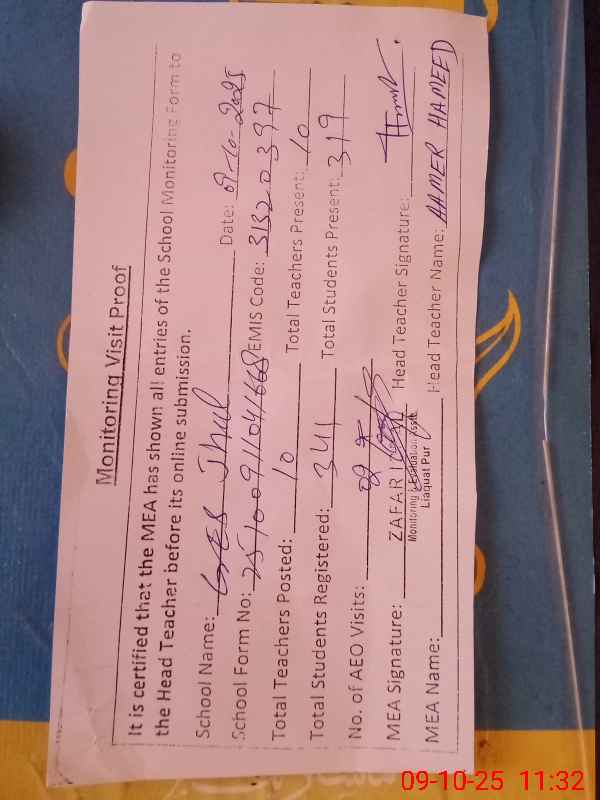 Monitoring Visit Proof
It is certified that the MEA has shown all entries of the School Monitoring Form to
the Head Teacher before its online submission.
School Name: GES Jhul Date: 09-10-2025
School Form No: EMIS Code: 31320397
Total Teachers Posted: 10 Total Teachers Present: 10
Total Students Registered: 341 Total Students Present: 319
No. of AEO Visits: 02
MEA Signature: ZAFAR Head Teacher Signature:
Monitoring & Evaluation Asstt
Liaquat Pur
MEA Name: Head Teacher Name: AAMER HAMEED
09-10-25 11:32